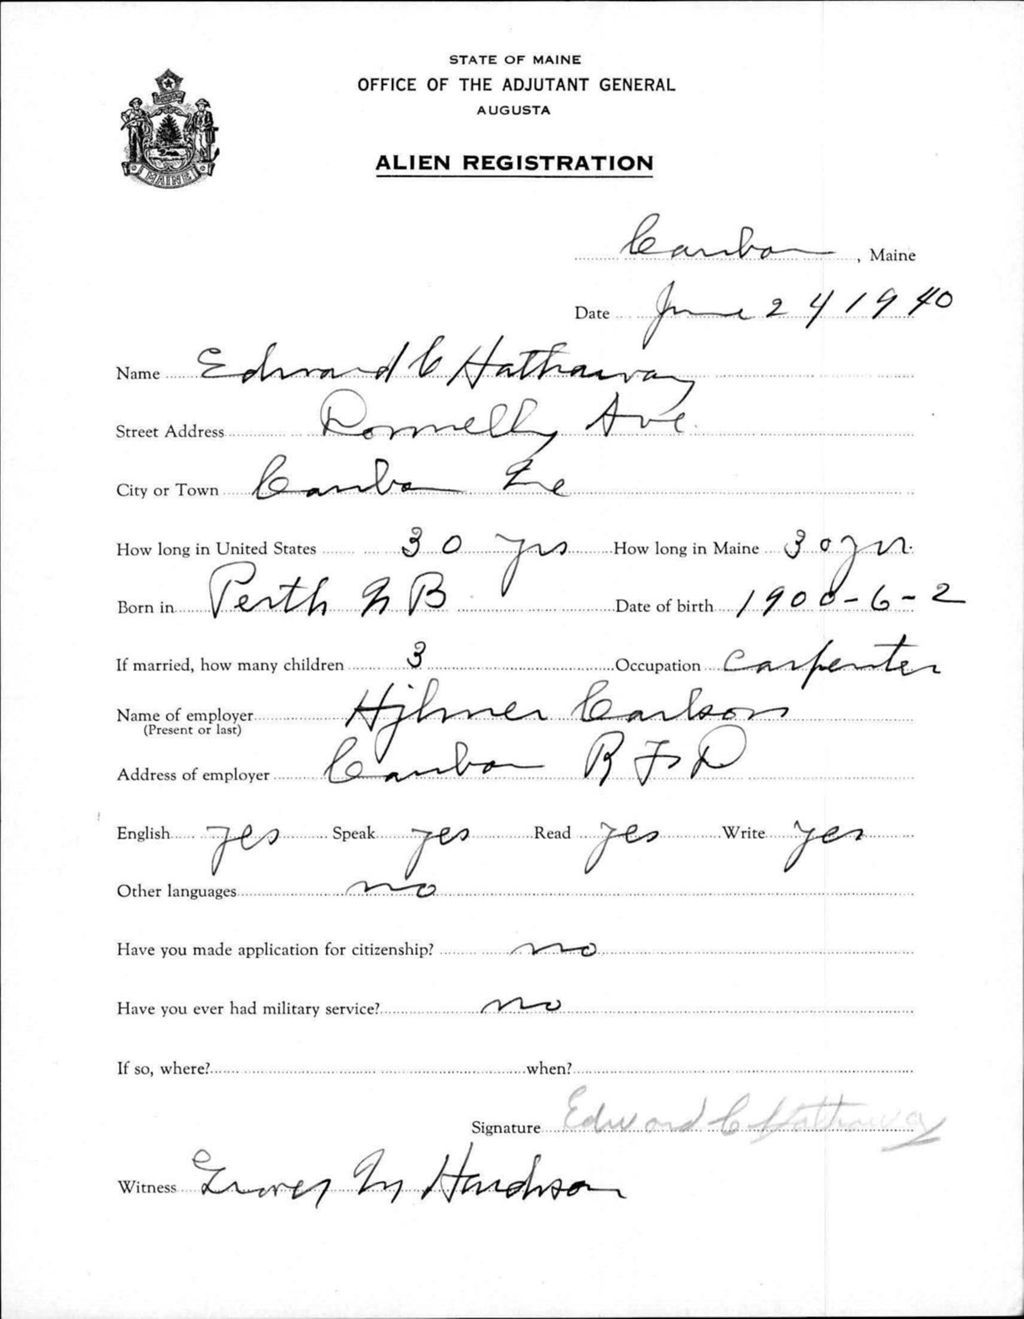 STATE OF MAINE
OFFICE OF THE ADJUTANT GENERAL
AUGUSTA
ALIEN REGISTRATION
MAINE
Caribou, Maine
Date June 24 1940
Name Edward C Hathaway
Street Address Donnelly Ave
City or Town Caribou Me
How long in United States 30 yrs How long in Maine 30 yrs.
Born in Perth N B Date of birth 1900-6-2
If married, how many children 3 Occupation Carpenter
Name of employer Hjlmer Carlson
(Present or last)
Address of employer Caribou R F D
English yes Speak yes Read yes Write yes
Other languages no
Have you made application for citizenship? no
Have you ever had military service? no
If so, where? when?
Signature Edward C Hathaway
Witness Grover M Hardison